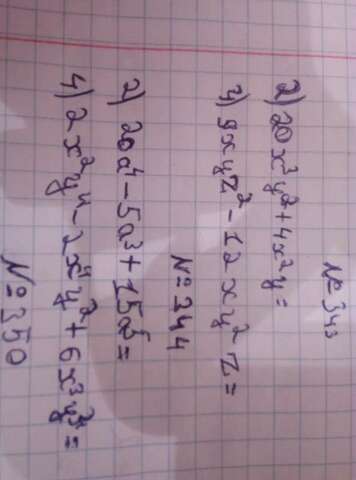 № 343
2) 20x³y² + 4x²y =
4) 9xyz² - 12xy²z =
№ 344
2) 20a⁴ - 5a³ + 15a⁵ =
4) 2x²y⁴ - 2x⁴y² + 6x³y³ =
№ 350